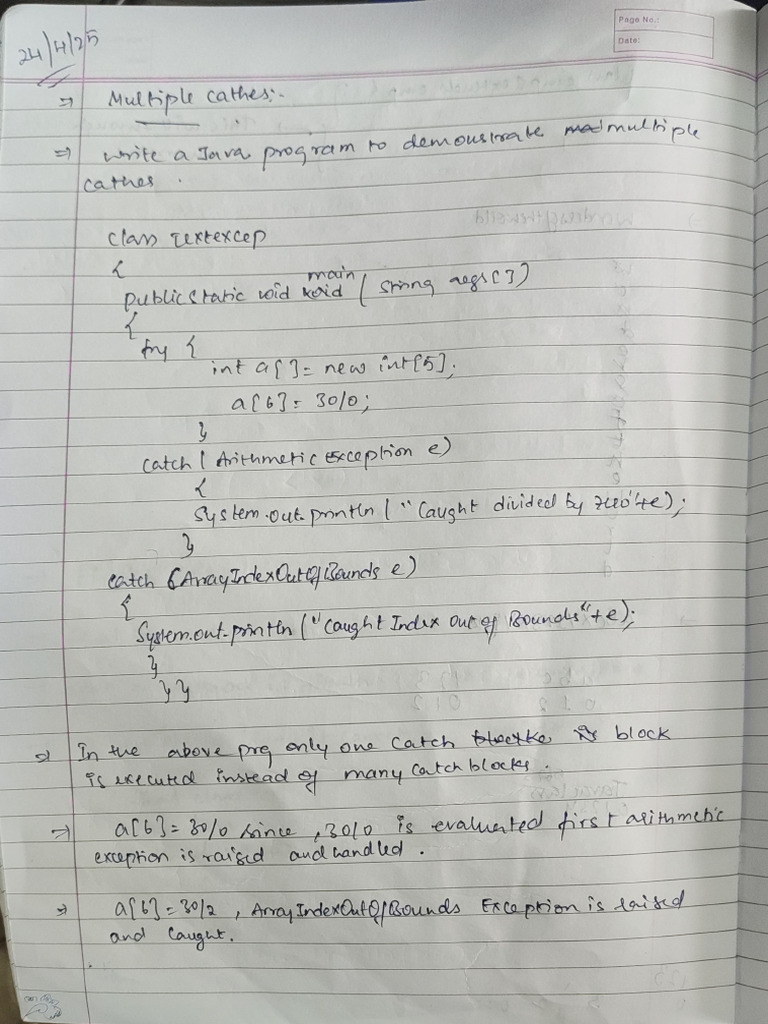 Page No.:
Date:
24/4/25
=> Multiple Cathes:-
=> write a Java program to demonstrate multiple
cathes.
class Textexcep
{
public static void main (String args[])
{
try {
int a[]= new int[5];
a[6]= 30/0;
}
catch (Arithmetic Exception e)
{
System.out.println ("Caught divided by zero"+e);
}
catch (ArrayIndexOutOfBounds e)
{
System.out.println ("Caught Index Out of Bounds"+e);
}
}}
=> In the above prg only one catch block
is executed instead of many catch blocks.
=> a[6]=30/0 since, 30/0 is evaluated first arithmetic
exception is raised and handled.
=> a[6]=30/2, ArrayIndexOutOfBounds Exception is raised
and caught.